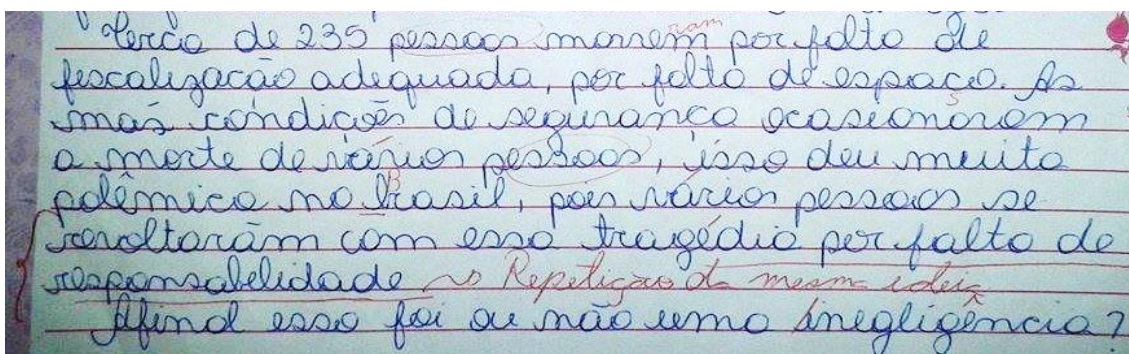 Cerca de 235 pessoas morrem ram por falta de
fiscalização adequada, por falta de espaço. As
más condições de segurança ocasionaram
a morte de várias pessoas, isso deu muita
polêmica no brasil, pois várias pessoas se
revoltaram com essa tragédia por falta de
responsabilidade Repetição da mesma ideia
Afinal esso foi ou não uma inegligência?